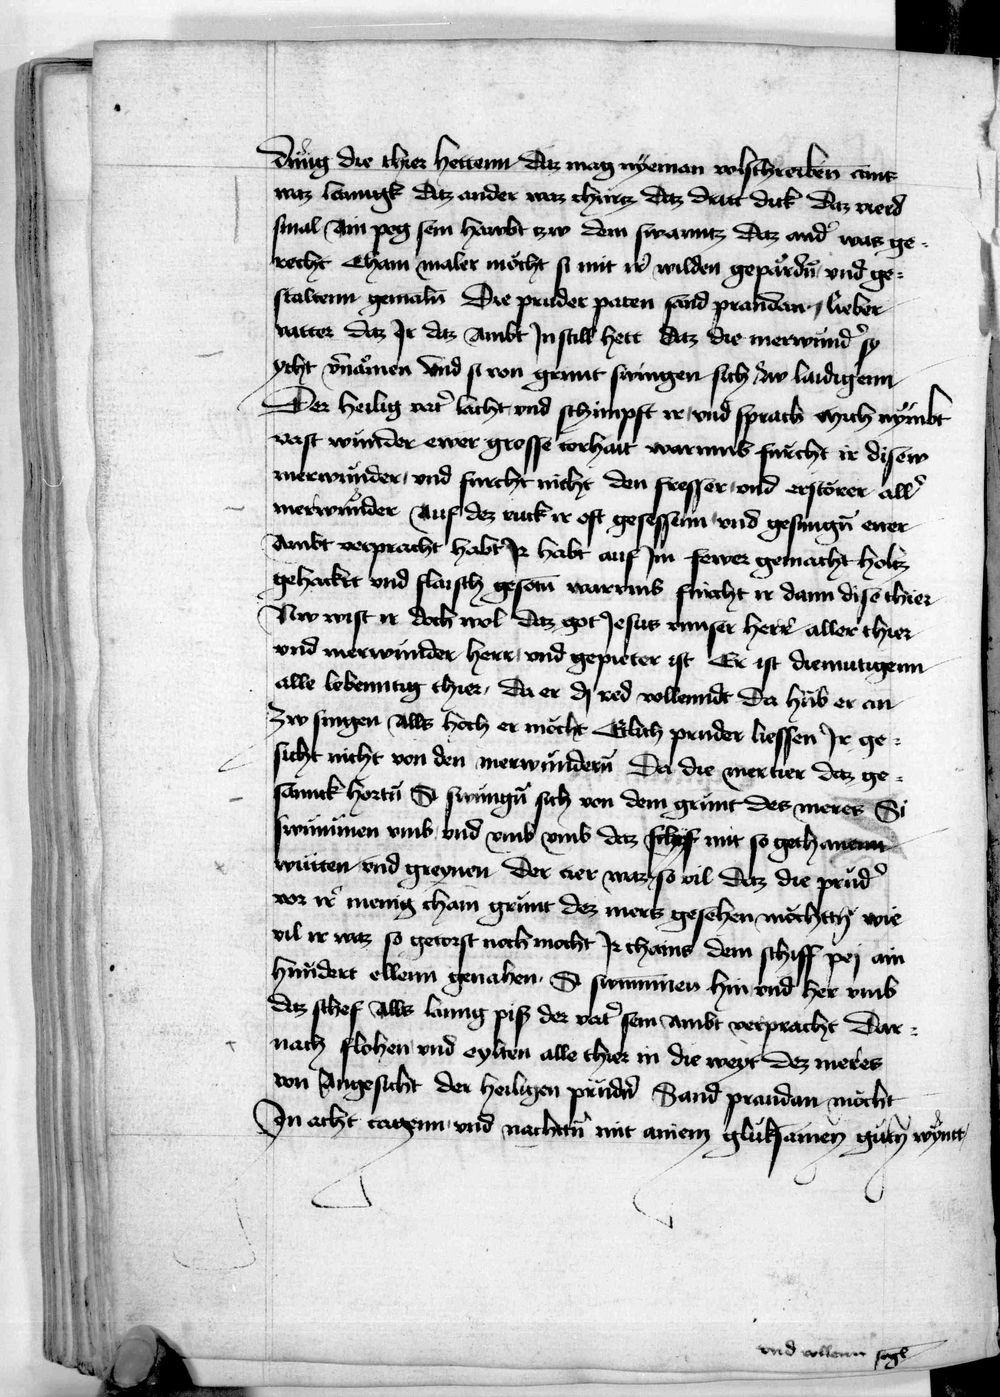 dung die thier hettenn Daz mag nyeman volschreiben ains
waz lanngk Daz ander waz churtz Daz dritt dick Daz vierd
smal Ain pog sein hawbt tzw dem swanntz Daz and' was ge-
recht Cham maler möcht si mit ir wilden gepärdn vnd ge-
staltenn gemaln Die pruder paten sand prandan lieber
vatter daz Ir daz Ambt In still hett Daz die merwund' so
ycht vernämen Vnd si von grunt swingen sich zw laidigenn
Der heilig vat' lacht vnd schimpft ir vnd sprach Mich nymbt
vast wunder ewer grosse torhait warumb furcht ir disew
merwunder vnd furcht nicht den fresser vnd erstörer all'
merwunder Auf dez ruck ir oft gesessenn vnd gesungn ewer
Ambt verpracht habt Ir habt auf Im fewer gemacht holtz
gehackt vnd flaisch gesotn warumb furcht ir dann dise thier
Nw wist ir doch wol daz got Jesus vnnser herr aller thier
vnd merwunder herr vnd gepieter ist Er ist diemutigenn
alle lebenntig thier Da er di red vollenndt Da hub er an
Zw singen Alls hoch er möcht Etlich pruder liessen Ir ge-
sicht nicht von den merwundern Da die mertier daz ge-
sannck hortn Si swungn sich von dem grunt des meres Si
swummen vmb vnd vmb vmb daz schyf mit so gethanenn
wüten vnd greynen Der tier waz so vil Daz die prud'
vor ir menig cham grunt dez mers gesehen möchten wie
vil ir waz so getorst noch mocht Ir chains dem schiff pej ain
hundert ellenn genahen Si swummen hin vnd her vmb
daz schef Alls lanng pisz der vat' sein Ambt verpracht Dar-
nach flohen vnd eylten alle thier in die weyt dez meres
von Angesicht der heiligen prudn Sand prandan möcht
In acht tagenn vnd nachtn mit ainem gluksamen gutn wyntt
vnd vollenn segl